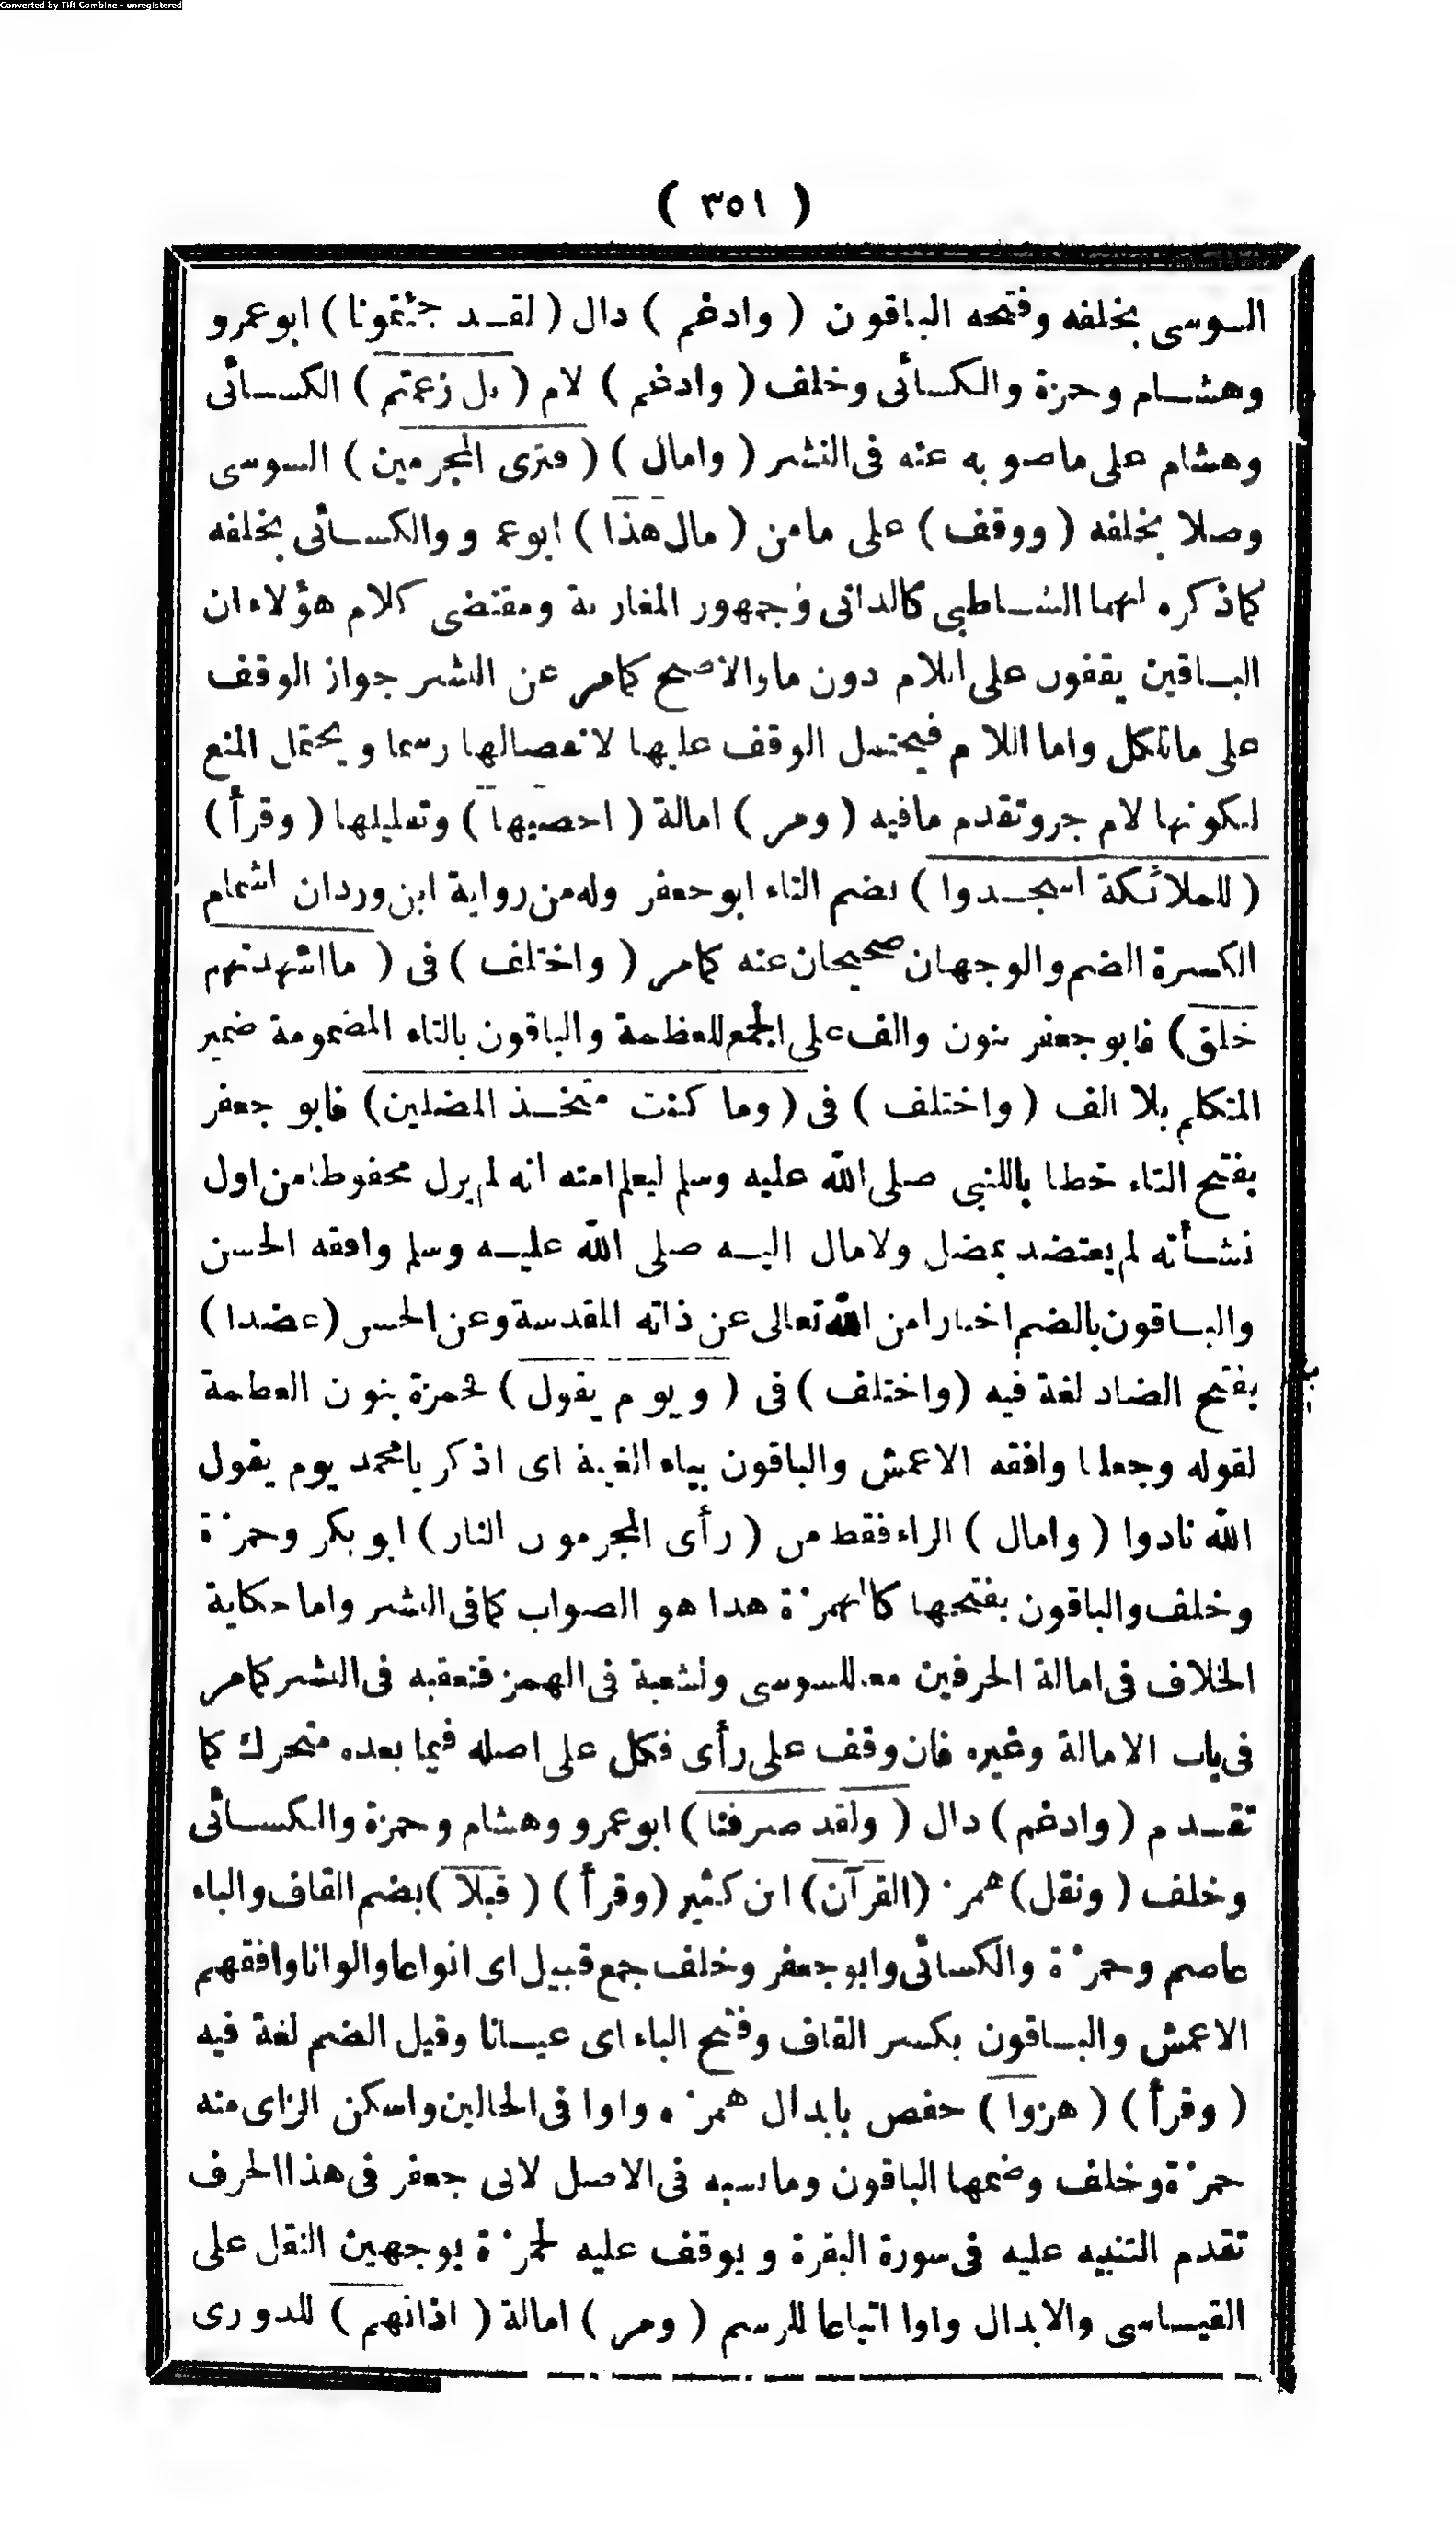 Converted by Tiff Combine - unregistered
( ٣٥١ )
السوسى بخلفه وفتحه الباقون ( وادغم ) دال ( لقد جئتمونا ) ابوعمرو
وهشام وحمزة والكسائى وخلف ( وادغم ) لام ( بل زعمتم ) الكسائى
وهشام على ماصوبه عنه فى النشر ( وامال ) ( فترى المجرمين ) السوسى
وصلا بخلفه ( ووقف ) على مامن ( مال هذا ) ابوعمرو والكسائى بخلفه
كماذكره لهما الشاطبى كالدانى وجمهور المغاربة ومقتضى كلام هؤلاء ان
الباقين يقفون على اللام دون ما والاصح كمامر عن النشر جواز الوقف
على مالكل واما اللام فيحتمل الوقف عليها لانفصالها رسما ويحتمل المنع
لكونها لام جر وتقدم مافيه ( ومر ) امالة ( احصيها ) وتعليلها ( وقرأ )
( للملائكة اسجدوا ) بضم التاء ابوجعفر وله من رواية ابن وردان اشمام
الكسرة الضم والوجهان صحيحان عنه كمامر ( واختلف ) فى ( مااشهدتهم
خلق ) فابوجعفر بنون والف على الجمع للعظمة والباقون بالتاء المضمومة ضمير
المتكلم بلا الف ( واختلف ) فى ( وما كنت متخذ المضلين ) فابو جعفر
بفتح التاء خطابا للنبى صلى الله عليه وسلم ليعلم امته انه لم يزل محفوظا من اول
نشأته لم يعتضد بمضل ولامال اليه صلى الله عليه وسلم وافقه الحسن
والباقون بالضم اخبارا من الله تعالى عن ذاته المقدسة وعن الحسن ( عضدا )
بفتح الضاد لغة فيه ( واختلف ) فى ( ويوم يقول ) فحمزة بنون العظمة
لقوله وجعلنا وافقه الاعمش والباقون بياء الغيبة اى اذكر يامحمد يوم يقول
الله نادوا ( وامال ) الراء فقط من ( رأى المجرمون النار ) ابوبكر وحمزة
وخلف والباقون بفتحها كالهمزة هذا هو الصواب كمافى النشر واما حكاية
الخلاف فى امالة الحرفين معا للسوسى ولشعبة فى الهمز فتعقبه فى النشر كمامر
فى باب الامالة وغيره فان وقف على رأى فكل على اصله فيما بعده متحرك كما
تقدم ( وادغم ) دال ( ولقد صرفنا ) ابوعمرو وهشام وحمزة والكسائى
وخلف ( ونقل ) همز ( القرآن ) ابن كثير ( وقرأ ) ( قبلا ) بضم القاف والباء
عاصم وحمزة والكسائى وابوجعفر وخلف جمع قبيل اى انواعا والوانا وافقهم
الاعمش والباقون بكسر القاف وفتح الباء اى عيانا وقيل الضم لغة فيه
( وقرأ ) ( هزوا ) حفص بابدال همزه واوا فى الحالين واسكن الزاى منه
حمزة وخلف وضمها الباقون ومانسبه فى الاصل لابى جعفر فى هذا الحرف
تقدم التنبيه عليه فى سورة البقرة ويوقف عليه لحمزة بوجهين النقل على
القياسى والابدال واوا اتباعا للرسم ( ومر ) امالة ( اذانهم ) للدورى